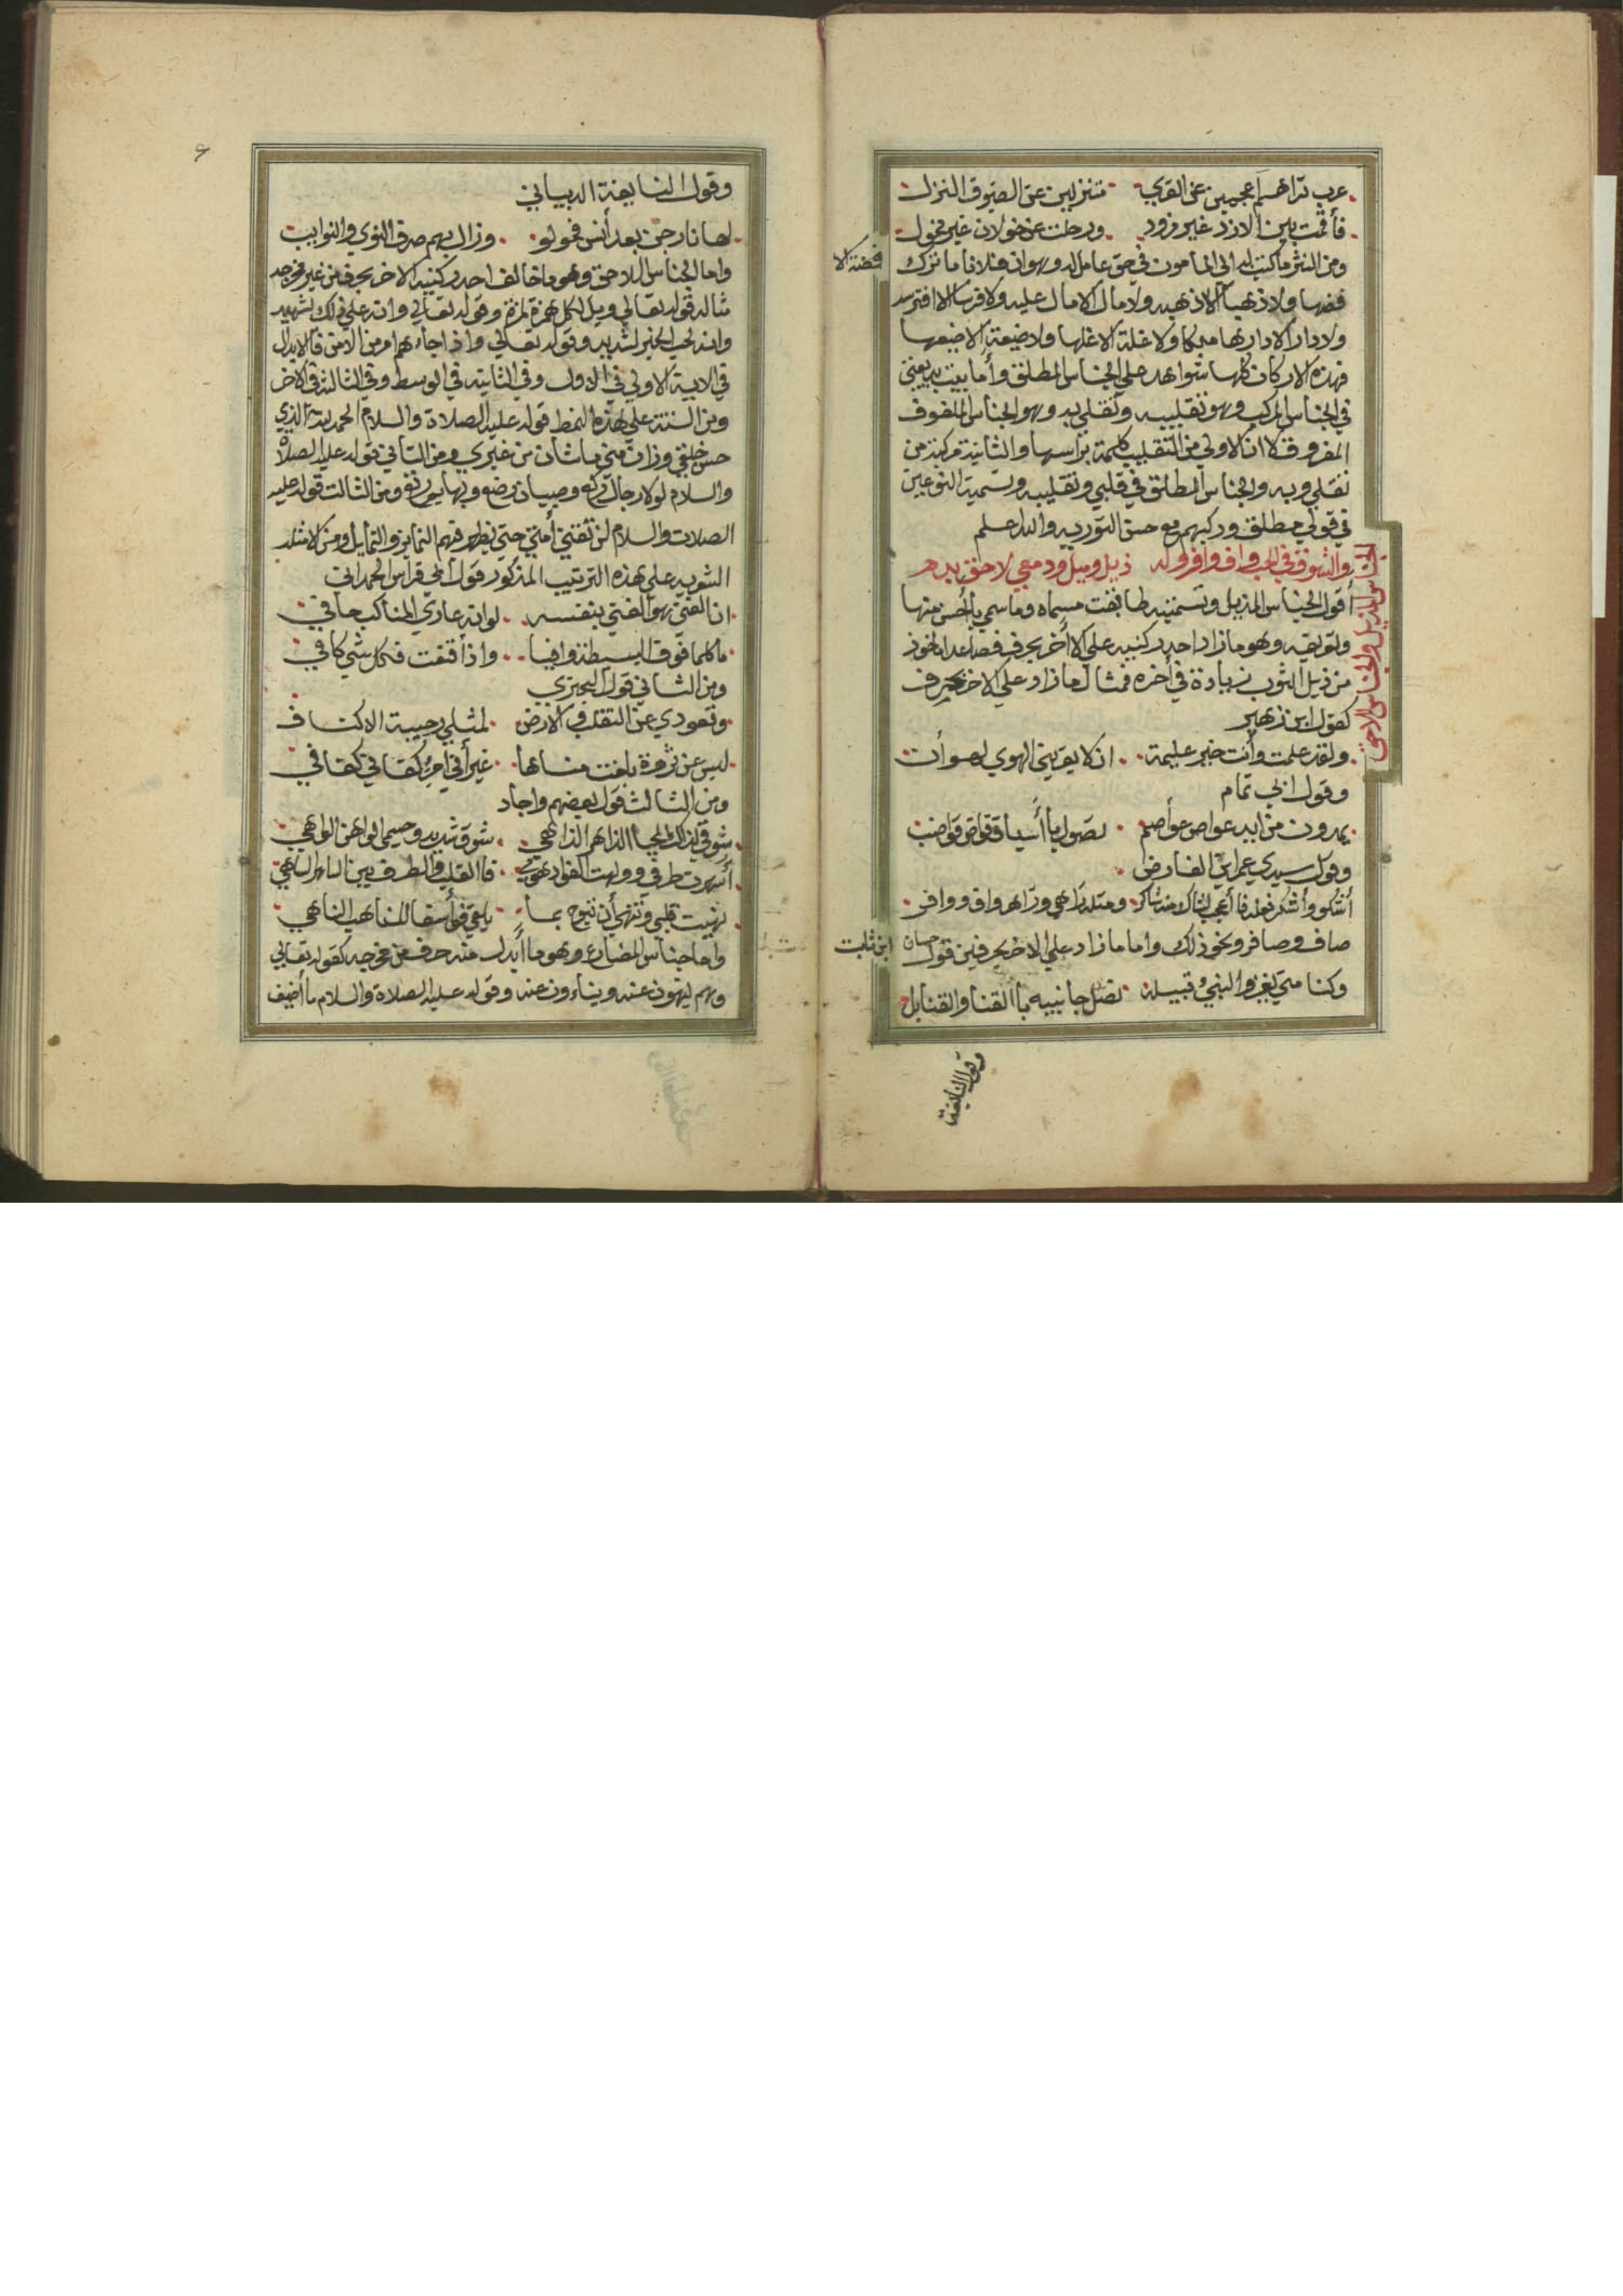 عرب تراهم أعجمين عن القري متنزلين عن الضيوف النزل
فأقمت بين الازد غير مزود ورحلت عن خولان غير مخول
ومن النثر ما كتب به الي المامون في حق عامل له وهو ان فلانا ما ترك فضة الا
فضها ولا ذهبا الا ذهبه ولا مال الا مال عليه ولا فرسا الا افترسه
ولا دارا الا دارها ملكا ولا غلة الا غلها ولا ضيعة الا ضيعها
فهذه الاركان كلها شواهد علي الجناس المطلق وأما بيت بديعيتي
في الجناس المركب وهو تقليبه وتقلي به وهو الجناس الملفوف
المفروق لا ان الاولي من التقليب كلمة براسها والثانية مركبة من
تقلي وبه والجناس المطلق في قلبي وتقليبه وتسمية النوعين
في قولي مطلق وركبهم مع حسن التورديه والله علم
والشوق في القلب واف وافر وله ذيل وميل ودمعي لاحق بدم
الجناس المذيل والجناس اللاحق
أقول الجناس المذيل وتسميته طابقت مسماه وما سمي بأحسن منها
وهو ما زاد احد ركنيه علي الاخر بحرف فصاعدا ماخوذ
من ذيل الثوب زيادة في أخره فمثال ما زاد علي الاخر بحرف
كقول ابن زهير
ولقد علمت وأنت خير عليمة ان لا يقربني الهوي لهوان
وقول ابي تمام
يمدون من ايد عواص عواصم تصول بأسياف قواض قواضب
وقول سيدي عمر ابن الفارض
أشكو وأشكر فعله فأعجب لشاك منه شاكر
صاف وصافر ونحو ذلك واما ما زاد علي الاخر بحرفين قول حسان ابن ثابت
وكنا متي يغزوا النبي قبيلة نصل جانبيه باالقنا والقنابل
وقول النابغة
وقول النابغة الدبياني
لها نار جن بعد أنس تحولو وزال بهم صرف النوي والنوايب
واما الجناس اللاحق وهو ما خالف احد ركنيه الاخر بحرف من غير مخرجه
مثاله قوله تعالي ويل لكل همزة لمزة وقوله تعالي وانه علي ذلك لشهيد
وانه لحب الخير لشديد وقوله تعالي واذا جاءهم امر من الامن فالابدال
في الاية الاولي في الاول وفي الثانية في الوسط وفي الثالثة في الاخر
ومن السنة علي هذه النمط قوله عليه الصلاة والسلام الحمد لله الذي
حسن خلقي وزان مني ما شان من غيري ومن الثاني قوله عليه الصلاة
والسلام لولا رجال ركع وصبيان رضع وبهايم رتع ومن الثالث قوله عليه
الصلات والسلام لن تفني أمتي حتي يظهر فيهم التمايز والتمايل ومن الامثلة
الشعريه علي هذه الترتيب المذكور قول ابي فراس الحمداني
ان الغني هو الغني بنفسه لو انه عاري المناكب حافي
ما كلما فوق البسيطة وافيا واذا قنعت فكل شي كافي
ومن الثاني قول البحتري
وقعودي عن التقلب في الارض لمثلي رحيبة الاكناف
ليس عن ثروة بلغت مداها غير أني امرء كفاني كفافي
ومن الثالث قول بعضهم واجاد
شوقي لذاك المحيا الزاهر الزاهي شوق شديد وجسمي الواهن الواهي
أسهرت طرفي وولهت الفؤاد هوي فالقلب والطرف بين الساهر الساهي
نهبت قلبي وتنهي أن تبوح بما يلقي فوأسفا للناهب الناهي
واما جناس المضارع وهو ما أبدل منه حرف من مخرجه كقوله تعالي
وهم ينهون عنه ويناءون عنه وقوله عليه الصلاة والسلام ما أضيف